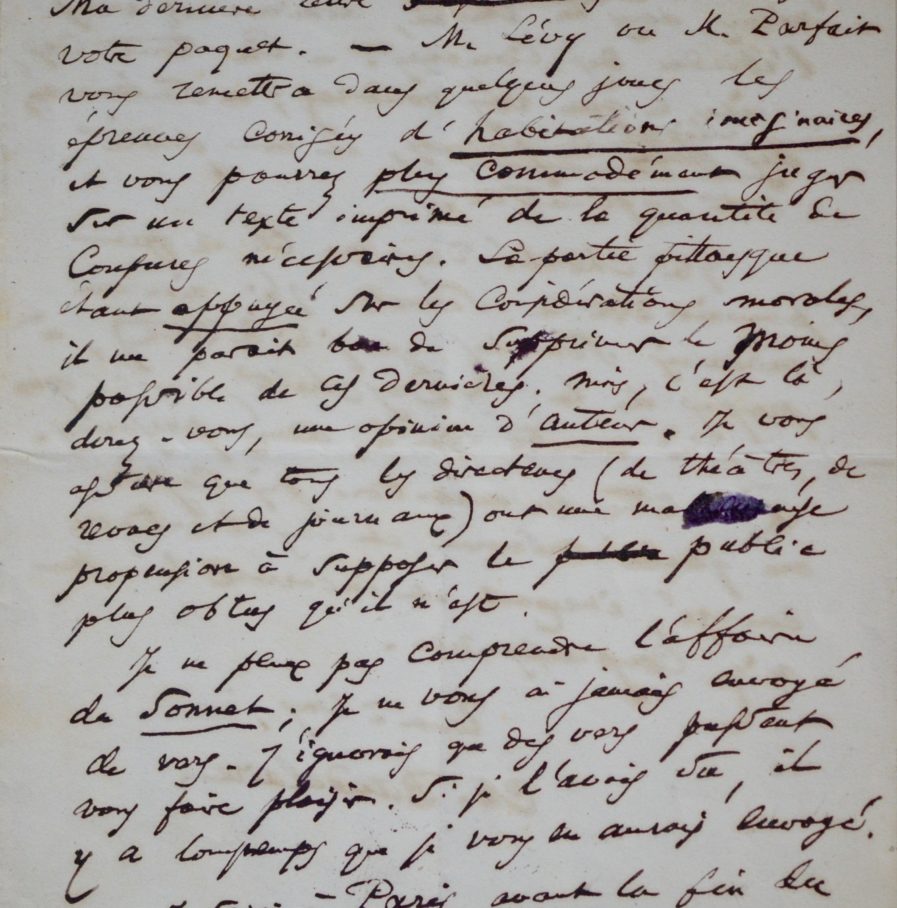 Ma dernière lettre
votre paquet. — M. Lévy ou M. Parfait
vous remettra dans quelques jours les
épreuves corrigées d'habitations imaginaires,
et vous pourrez plus commodément juger
sur un texte imprimé de la quantité de
coupures nécessaires. La partie pittoresque
étant appuyée sur les considérations morales,
il me parait bon de supprimer le moins
possible de ces dernières. Mais, c'est là,
direz-vous, une opinion d'auteur. Je vous
assure que tous les directeurs (de théâtres, de
revues et de journaux) ont une
propension à supposer le public
plus obtus qu'il n'est.
Je ne peux pas comprendre l'affaire
du Sonnet ; Je ne vous ai jamais envoyé
de vers. J'ignorais que des vers pussent
vous faire plaisir. Si je l'avais su, il
y a longtemps que je vous en aurais envoyé.
Paris avant la fin du